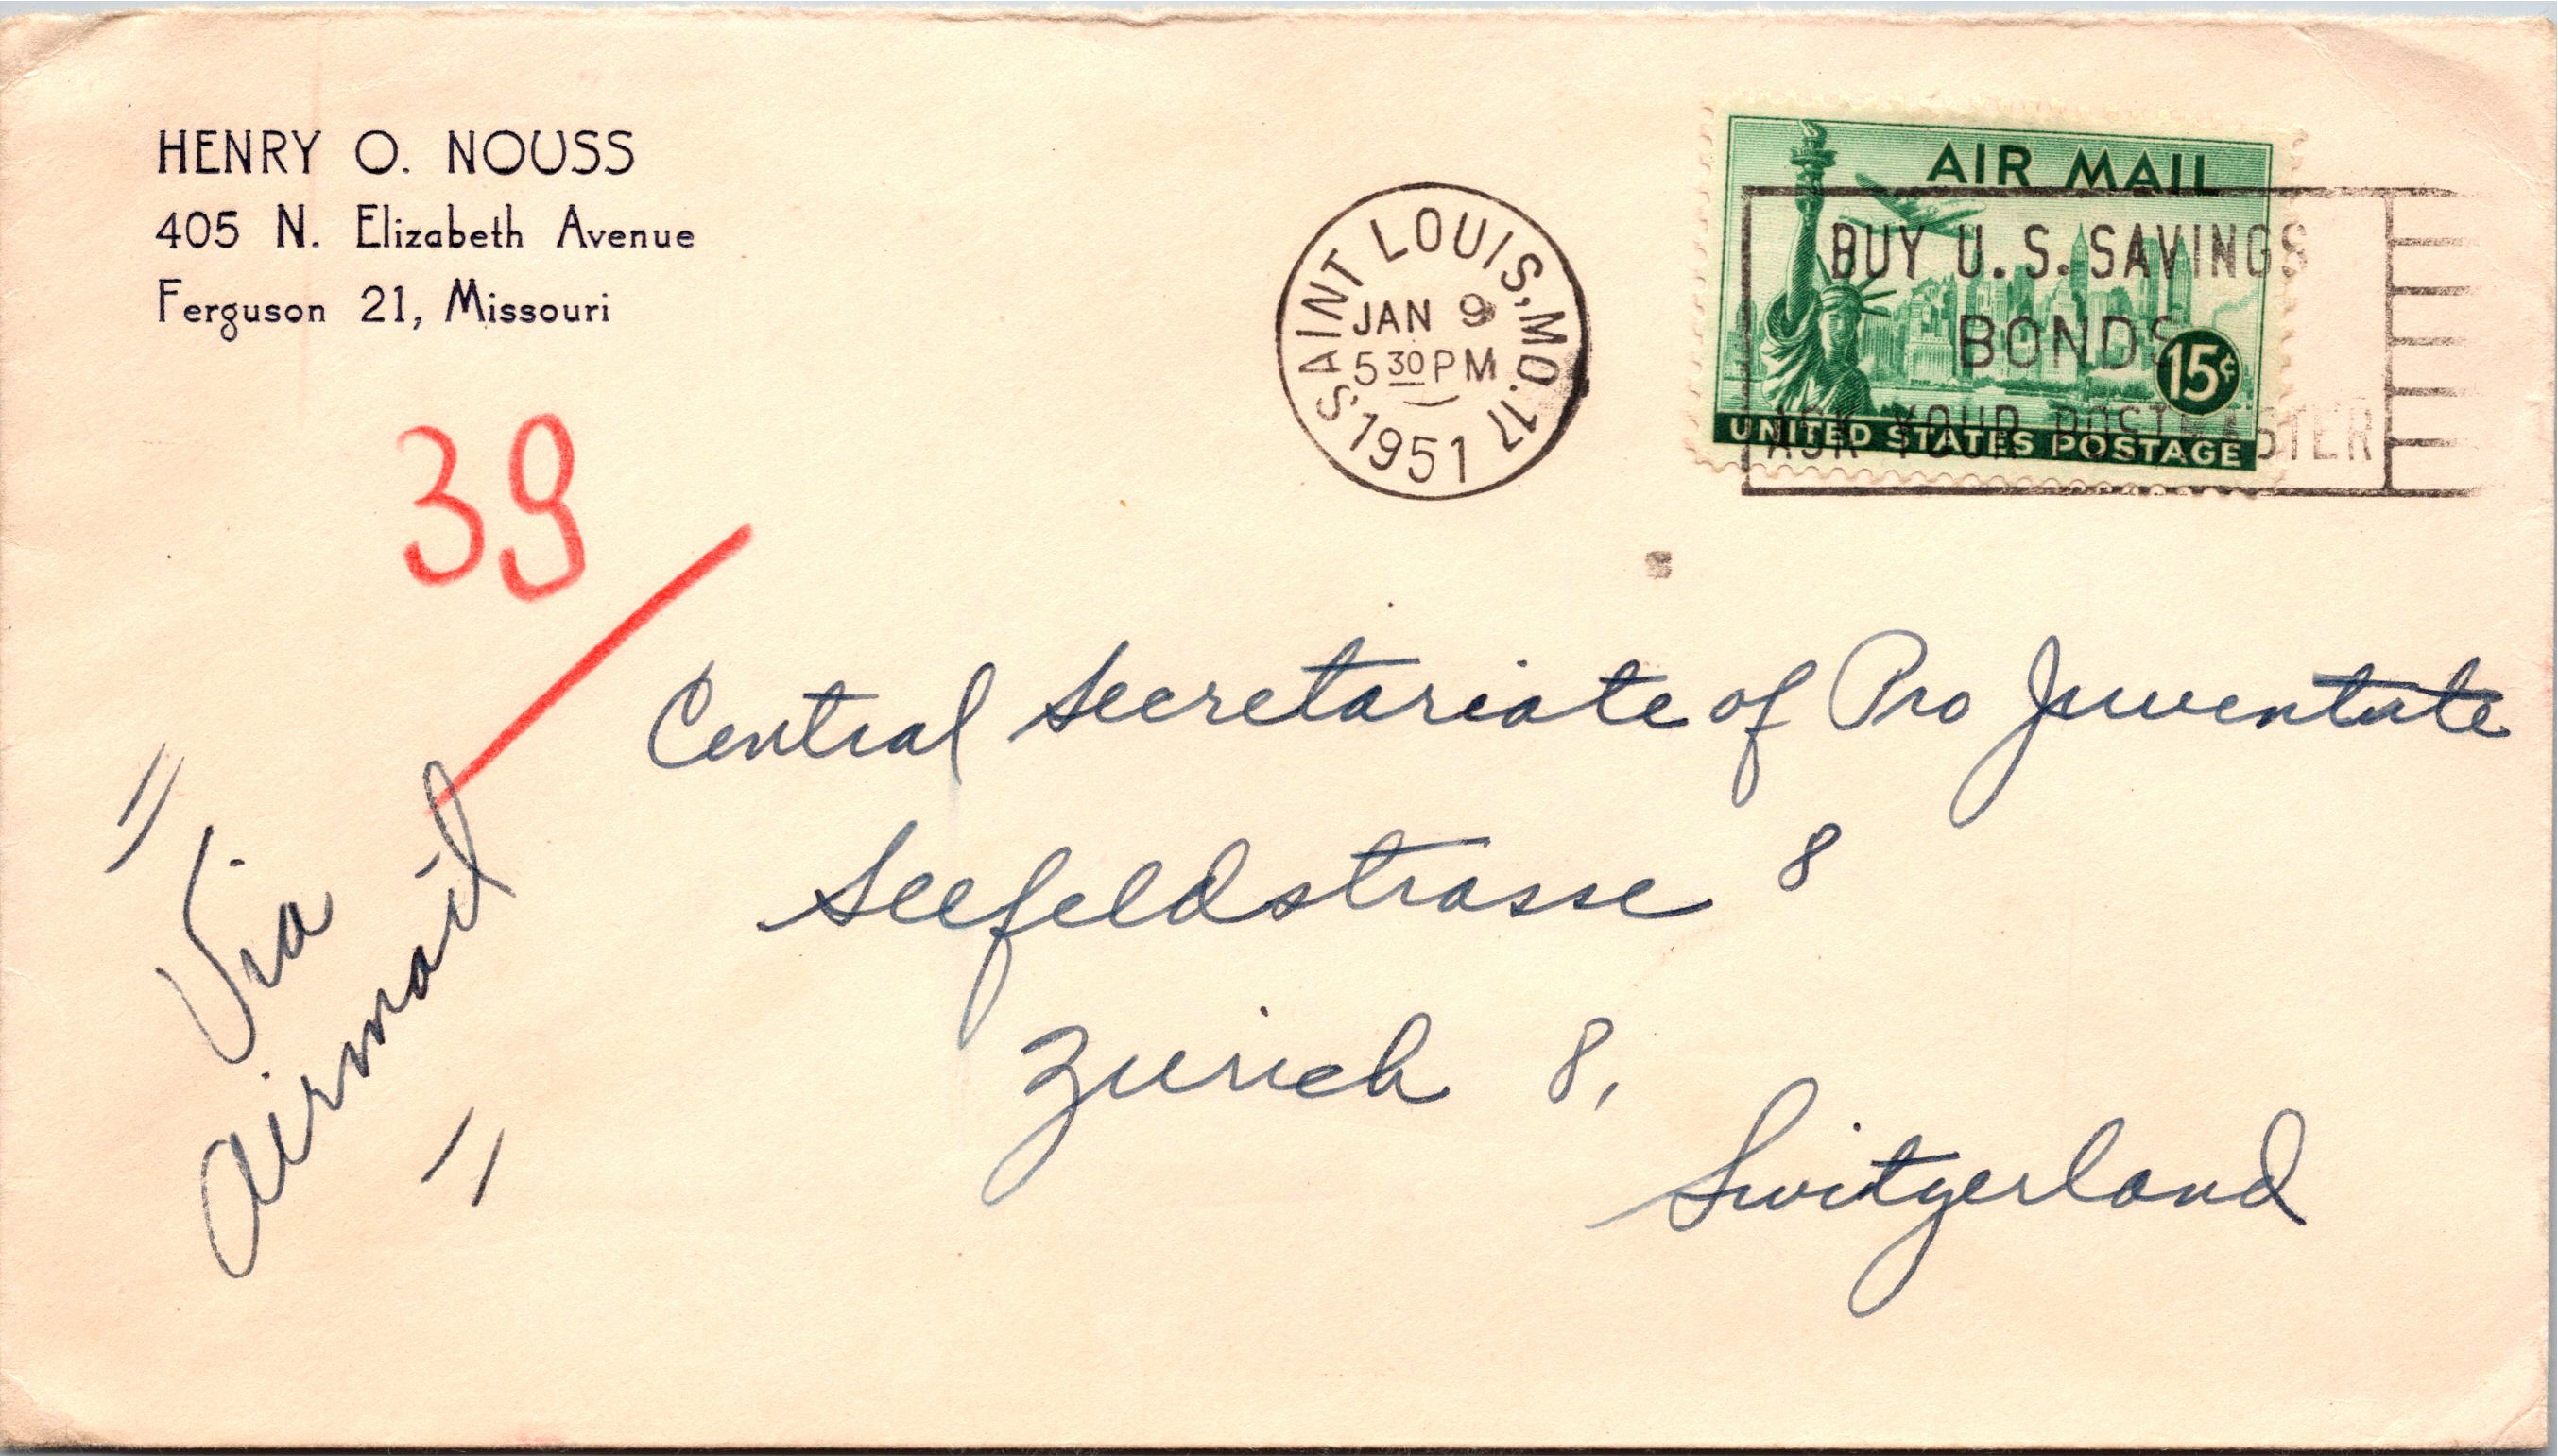 HENRY O. NOUSS
405 N. Elizabeth Avenue
Ferguson 21, Missouri
SAINT LOUIS, MO. 17
JAN 9
5 30 PM
1951
AIR MAIL
15¢
UNITED STATES POSTAGE
BUY U. S. SAVINGS
BONDS
ASK YOUR POSTMASTER
39
Central Secretariate of Pro Juventute
Seefeldstrasse 8
Zurich 8,
Switzerland
"Via
airmail"